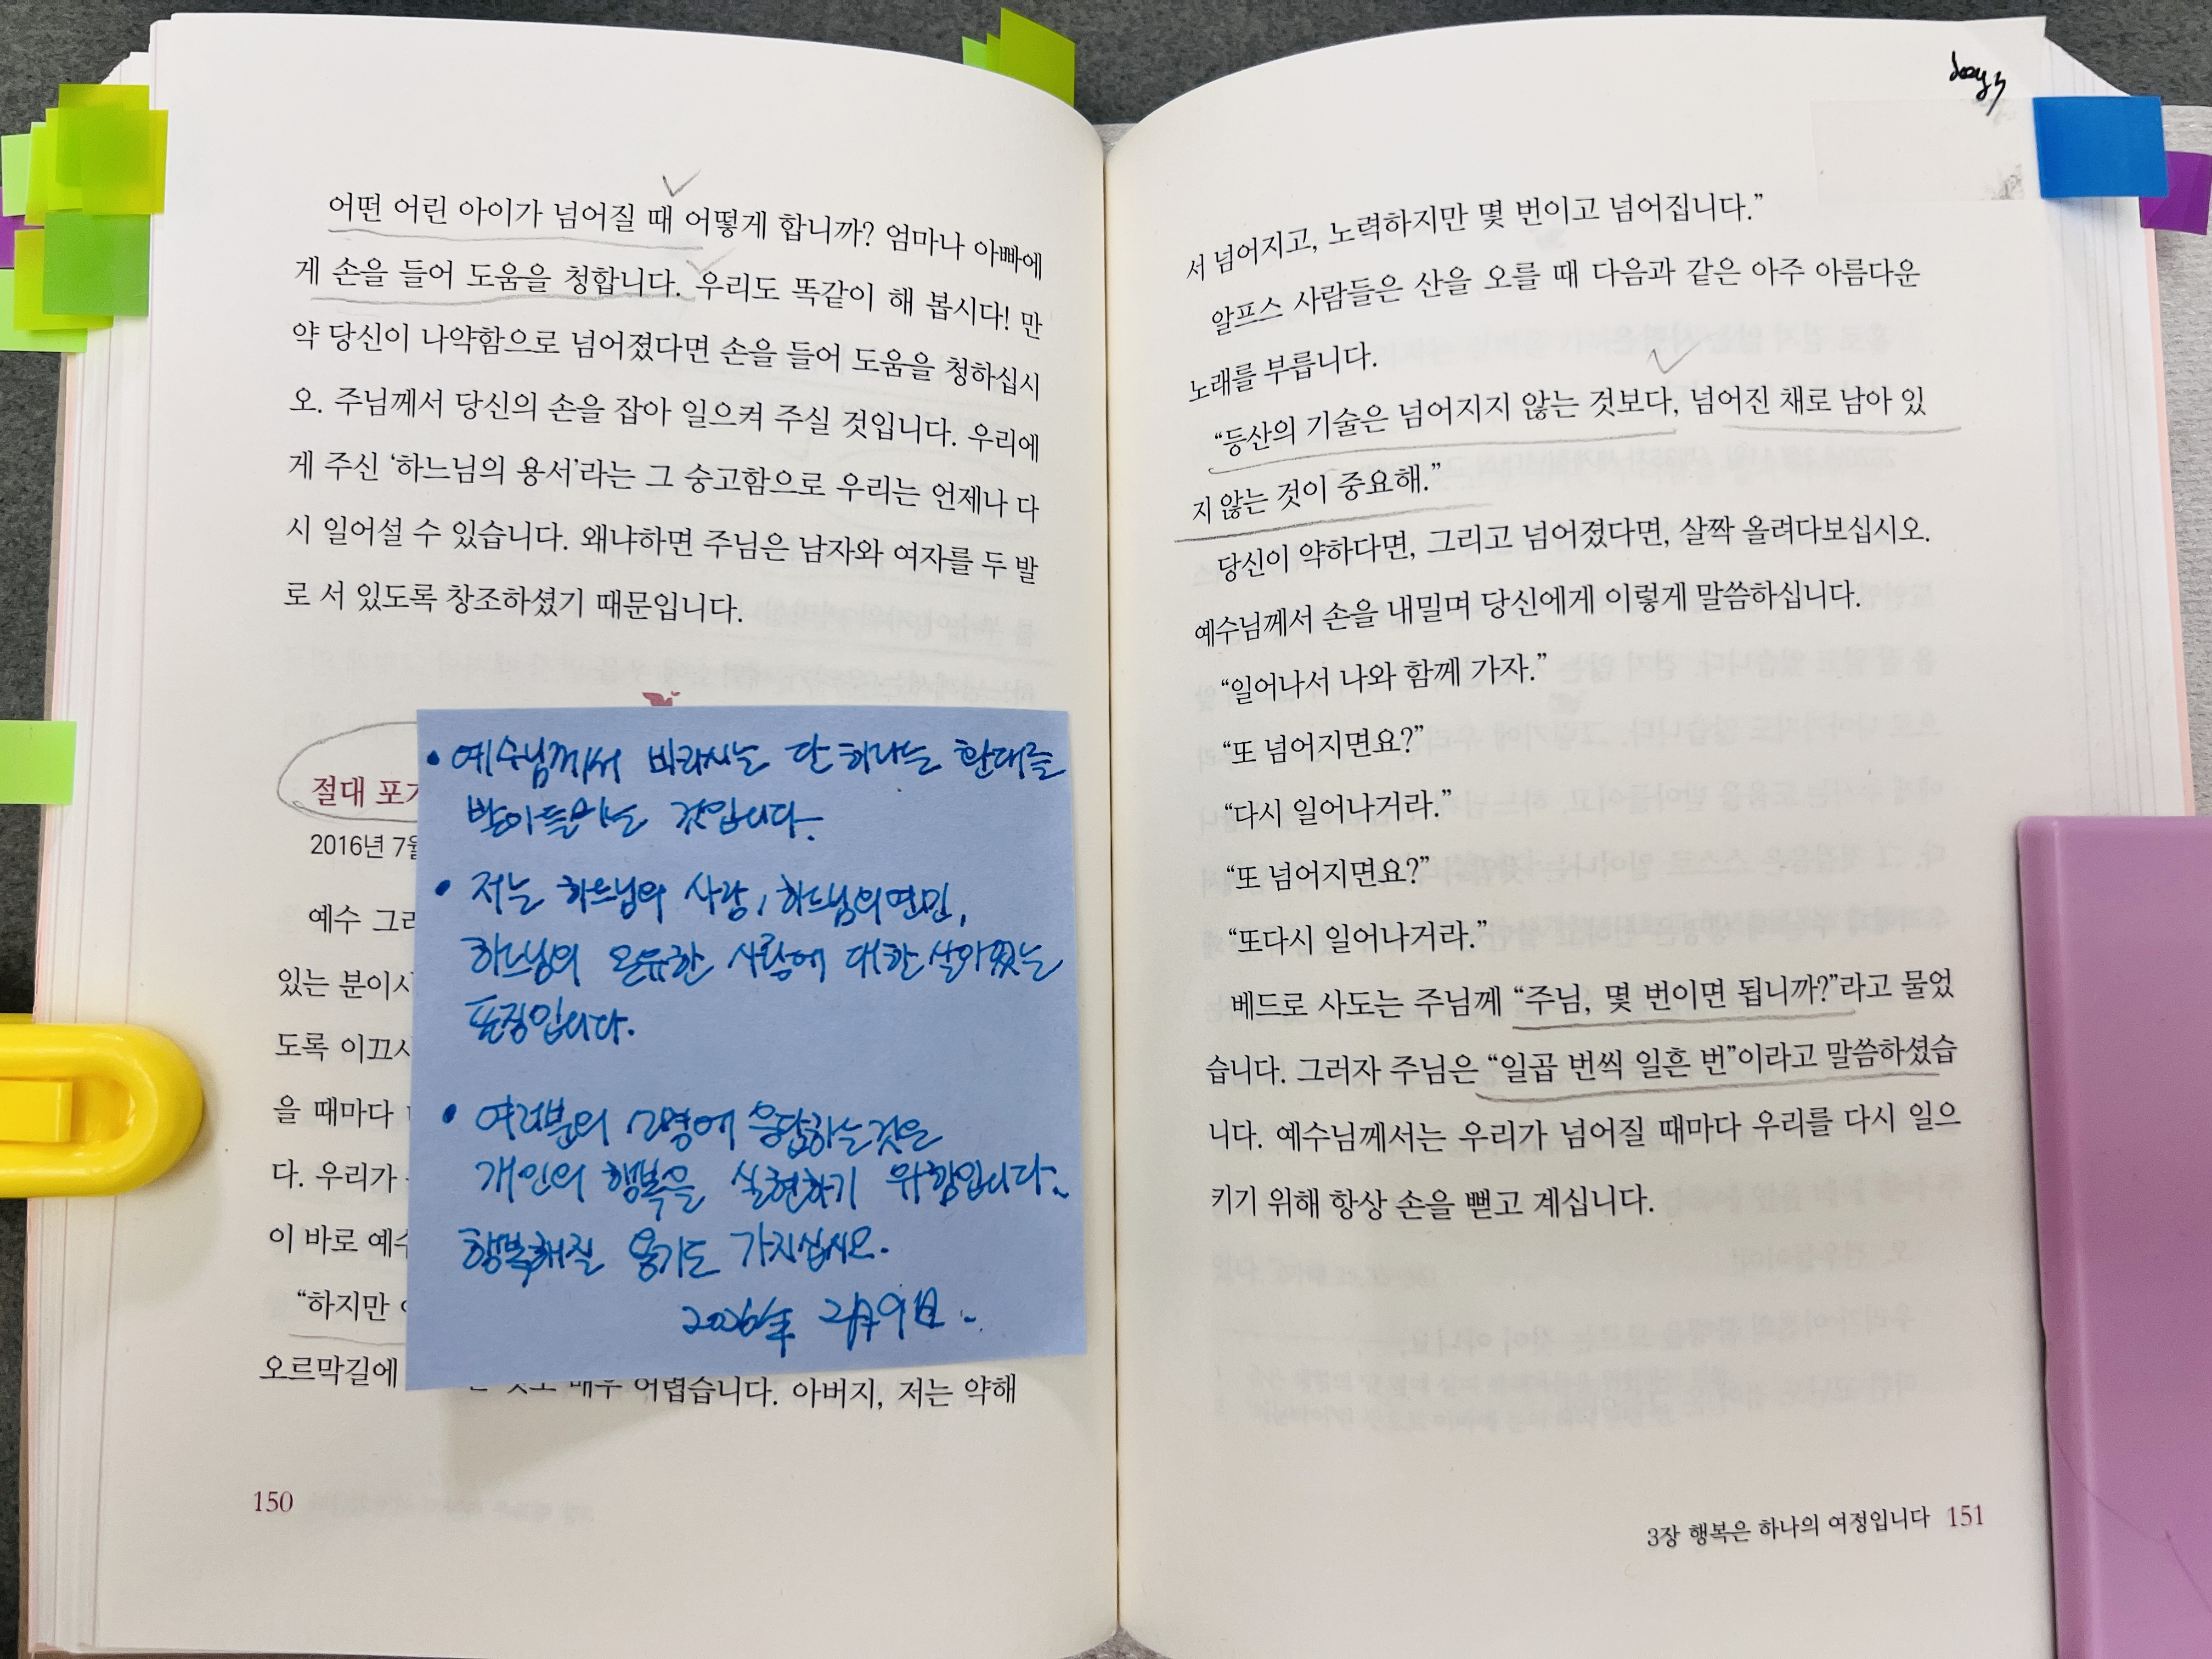 어떤 어린 아이가 넘어질 때 어떻게 합니까? 엄마나 아빠에
게 손을 들어 도움을 청합니다. 우리도 똑같이 해 봅시다! 만
약 당신이 나약함으로 넘어졌다면 손을 들어 도움을 청하십시
오. 주님께서 당신의 손을 잡아 일으켜 주실 것입니다. 우리에
게 주신 ‘하느님의 용서’라는 그 숭고함으로 우리는 언제나 다
시 일어설 수 있습니다. 왜냐하면 주님은 남자와 여자를 두 발
로 서 있도록 창조하셨기 때문입니다.
절대
2016년
예수
있는
도록
을 때마다
다. 우리가
이 바로
“하지만
오르막길에 매우 어렵습니다. 아버지, 저는 약해
150
• 예수님께서 바라시는 단 하나는 환대를
받아들이는 것입니다.
• 저는 하느님의 사랑, 하느님의 연민,
하느님의 온유한 사랑에 대한 살아있는
표징입니다.
• 여러분의 소명에 응답하는것은
개인의 행복을 실현하기 위함입니다.
행복해질 용기도 가지십시오.
2026年 2月9日.
서 넘어지고, 노력하지만 몇 번이고 넘어집니다.”
알프스 사람들은 산을 오를 때 다음과 같은 아주 아름다운
노래를 부릅니다.
“등산의 기술은 넘어지지 않는 것보다, 넘어진 채로 남아 있
지 않는 것이 중요해.”
당신이 약하다면, 그리고 넘어졌다면, 살짝 올려다보십시오.
예수님께서 손을 내밀며 당신에게 이렇게 말씀하십니다.
“일어나서 나와 함께 가자.”
“또 넘어지면요?”
“다시 일어나거라.”
“또 넘어지면요?”
“또다시 일어나거라.”
베드로 사도는 주님께 “주님, 몇 번이면 됩니까?”라고 물었
습니다. 그러자 주님은 “일곱 번씩 일흔 번”이라고 말씀하셨습
니다. 예수님께서는 우리가 넘어질 때마다 우리를 다시 일으
키기 위해 항상 손을 뻗고 계십니다.
3장 행복은 하나의 여정입니다 151